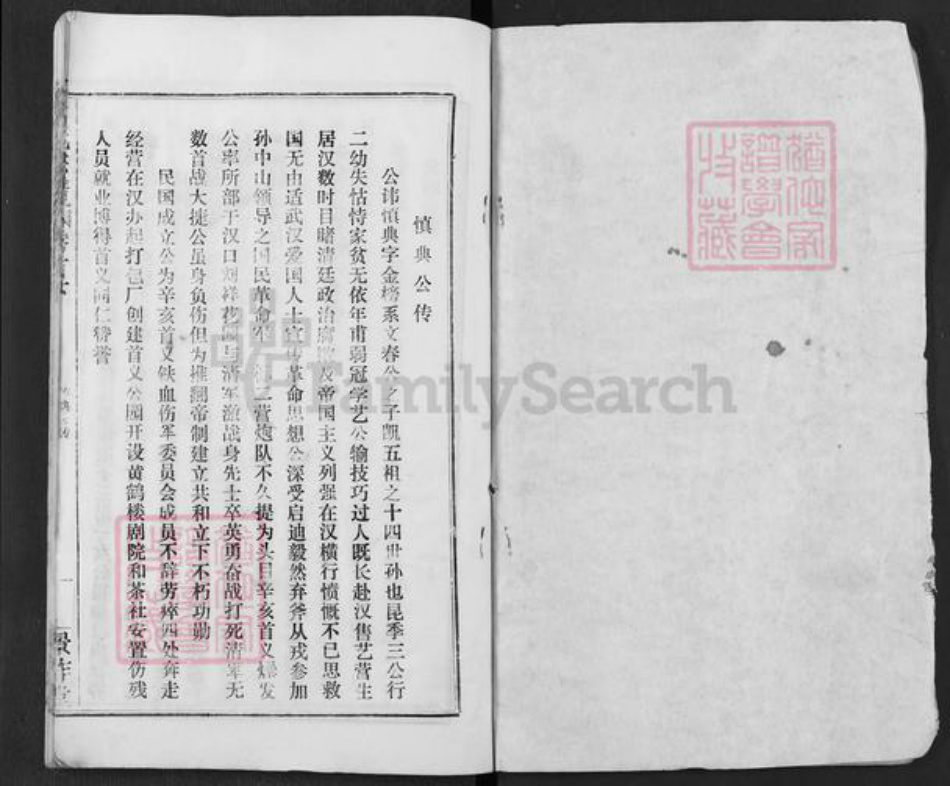 慎典公传
公讳慎典字金榜系文春公之子凯五祖之十四世孙也昆季三公行
二幼失怙恃家贫无依年甫弱冠学艺公输技巧过人既长赴汉售艺营生
居汉数时目睹清廷政治腐败及帝国主义列强在汉横行愤慨不已思救
国无由适武汉爱国人士宣传革命思想公深受启迪毅然弃斧从戎参加
孙中山领导之国民革命军 二营炮队不久提为头目辛亥首义爆发
公率所部于汉口刘祥花园与清军激战身先士卒英勇奋战打死清军无
数首战大捷公虽身负伤但为推翻帝制建立共和立下不朽功勋
民国成立公为辛亥首义铁血伤军委员会成员不辞劳瘁四处奔走
经营在汉办起打包厂创建首义公园开设黄鹤楼剧院和茶社安置伤残
人员就业博得首义同仁赞誉
一
FamilySearch
家谱学会
收藏